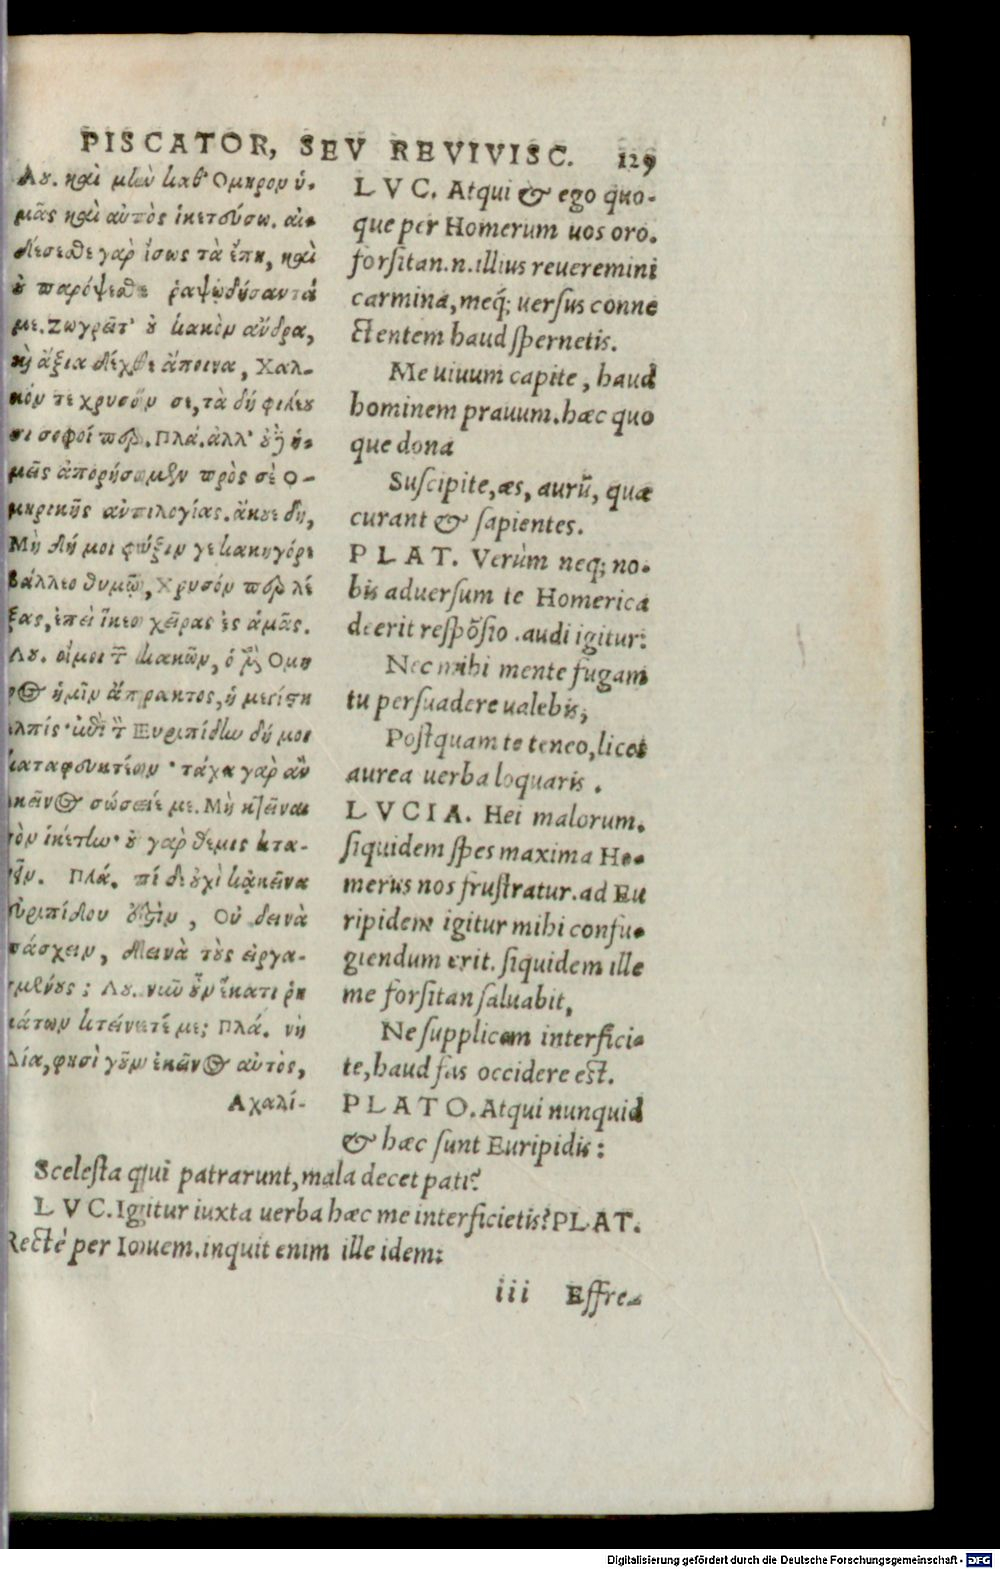 PISCATOR, SEV REVIVISC. 129
Λυ. καὶ μὲν καθ' Ὅμηρον ὑ-
μᾶς καὶ αὐτὸς ἱκετεύσω. αἰ-
δέσεσθε γὰρ ἴσως τὰ ἔπη, καὶ
ὐ παρόψεσθε ῥαψῳδήσαντά
με. Ζωγρεῖτ' ὐ κακὸν ἄνδρα,
καὶ ἄξια δέχθε ἄποινα, Χαλ-
κόν τε χρυσόν τε, τὰ δή φιλέου
σι σοφοί περ. Πλά. ἀλλ' ὐδὲ ἡ-
μεῖς ἀπορήσομεν πρὸς σὲ Ο-
μηρικῆς ἀντιλογίας. ἄκουε δή,
Μὴ δή μοι φύξιν γε κακηγόρε
βάλλεο θυμῷ, Χρυσόν περ λέ
ξας, ἐπεὶ ἵκεο χεῖρας ἐς ἁμάς.
Λυ. οἴμοι τῶν κακῶν, ὁ μὲν Ομη
ρος ἡμῖν ἄπρακτος, ἡ μεγίστη
ἐλπίς. ἐπὶ τὸν Εὐριπίδην δή μοι
καταφευκτέον. τάχα γὰρ ἂν
ἐκεῖνος σώσειέ με. Μὴ κτεῖναι
τὸν ἱκέτην. ὐ γὰρ θέμις κτα-
νεῖν. Πλά. τί δὲ ὐχὶ κἀκεῖνα
Εὐριπίδου ἐστὶν, Οὐ δεινὰ
πάσχειν, δεινὰ τὺς εἰργα-
σμένυς; Λυ. νῦν ὖν ἕκατι ῥη
μάτων κτείνετέ με; Πλά. νὴ
Δία, φησὶ γῦν ἐκεῖνος αὐτὸς,
Αχαλί-
L V C. Atqui & ego quo-
que per Homerum uos oro.
forsitan.n.illius reueremini
carmina, meq; uersus conne
ctentem haud spernetis.
Me uiuum capite, haud
hominem prauum. hæc quo
que dona
Suscipite, æs, aurũ, quæ
curant & sapientes.
P L A T. Verùm neq; no-
bis aduersum te Homerica
deerit respõsio. audi igitur:
Nec mihi mente fugam
tu persuadere ualebis,
Postquam te teneo, licet
aurea uerba loquaris.
L V C I A. Hei malorum.
siquidem spes maxima Ho-
merus nos frustratur. ad Eu
ripidem igitur mihi confu-
giendum erit. siquidem ille
me forsitan saluabit,
Ne supplicem interfici-
te, haud fas occidere est.
P L A T O. Atqui nunquid
& hæc sunt Euripidis:
Scelesta qui patrarunt, mala decet pati?
L V C. Igitur iuxta uerba hæc me interficietis? PLAT.
Rectè per Iouem. inquit enim ille idem:
iii Effre-
Digitalisierung gefördert durch die Deutsche Forschungsgemeinschaft - DFG